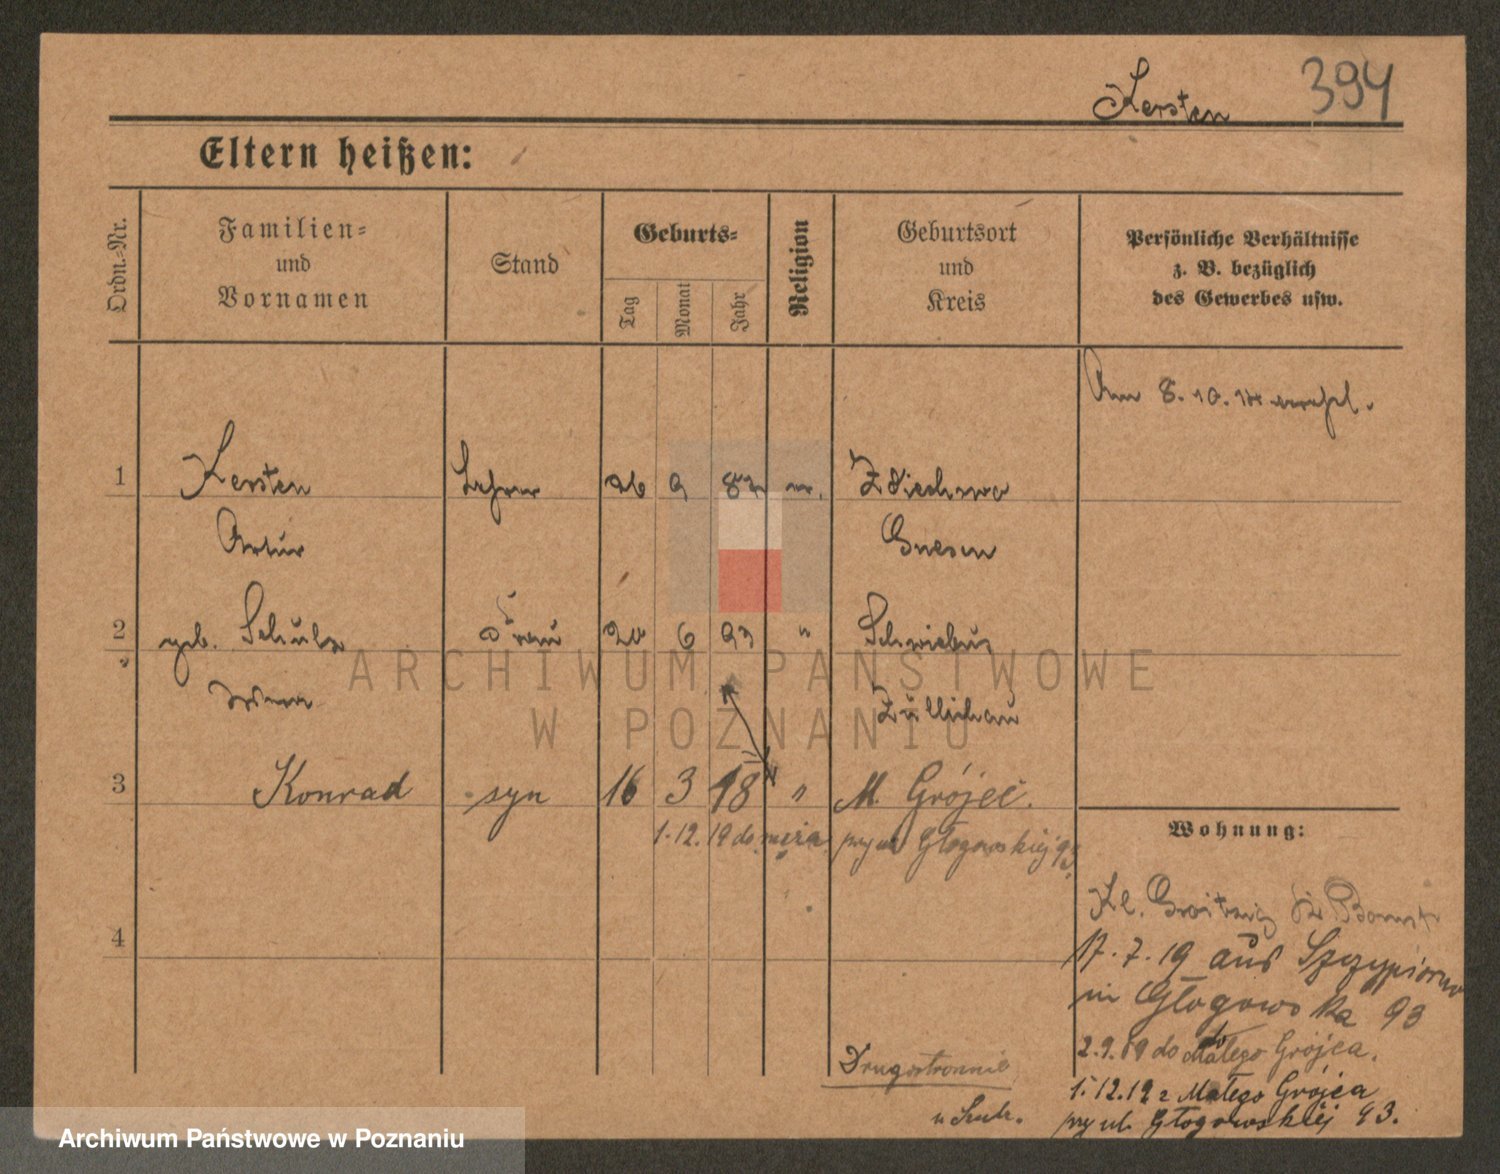 Kersten 394
Eltern heißen:
Ordn.-Nr.
Familien-
und
Vornamen
Stand
Geburts-
Tag
Monat
Jahr
Religion
Geburtsort
und
Kreis
Persönliche Verhältnisse
z. B. bezüglich
des Gewerbes usw.
Am 8. 10.
1 Kersten Lehrer 26 9 87 Zdiechowa
Artur Gnesen
2 geb. Schulz Frau 20 6 93 " Schwiebus
Züllichau
3 Konrad syn 16 3 18 " M. Grójec.
1.12.19 do męża przy ul Głogowskiej 93
Wohnung:
4
Kl. Bomst
17.7.19 aus Szczypiorno
in Głogowska 93
2.9.19 do Małego Grójca.
1.12.19 z Małego Grójca
przy ul. Głogowskiej 93.
Drugostronnie
ARCHIWUM PAŃSTWOWE
W POZNANIU
Archiwum Państwowe w Poznaniu